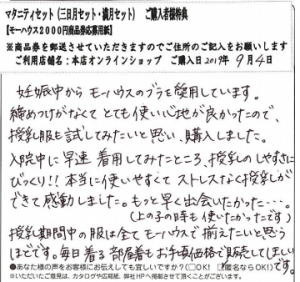 マタニティセット（三日月セット・満月セット） ご購入者様特典
【モーハウス2000円商品券応募用紙】
※商品券を郵送させていただきますのでご住所のご記入をお願いします
ご利用店舗名：本店オンラインショップ ご購入日2019年9月4日
妊娠中からモーハウスのブラを愛用しています。
締めつけがなくてとても使い心地が良かったので、
授乳服も試してみたいと思い、購入しました。
入院中に早速着用してみたところ、授乳のしやすさに
びっくり!!本当に使いやすくてストレスなく授乳が
できて感動しました。もっと早く出会いたかった…。
（上の子の時も使いたかったです）
授乳期間中の服は全てモーハウスで揃えたいと思う
ほどです。毎日着る部屋着もお手頃価格で販売してほしい
です。
●あなた様の声をお客様にお伝えしても宜しいですか？（□OK! ☑匿名ならOK!）
※いただいたご意見は、カタログや広告紙、弊社HPへ掲載させて頂くことがございます。